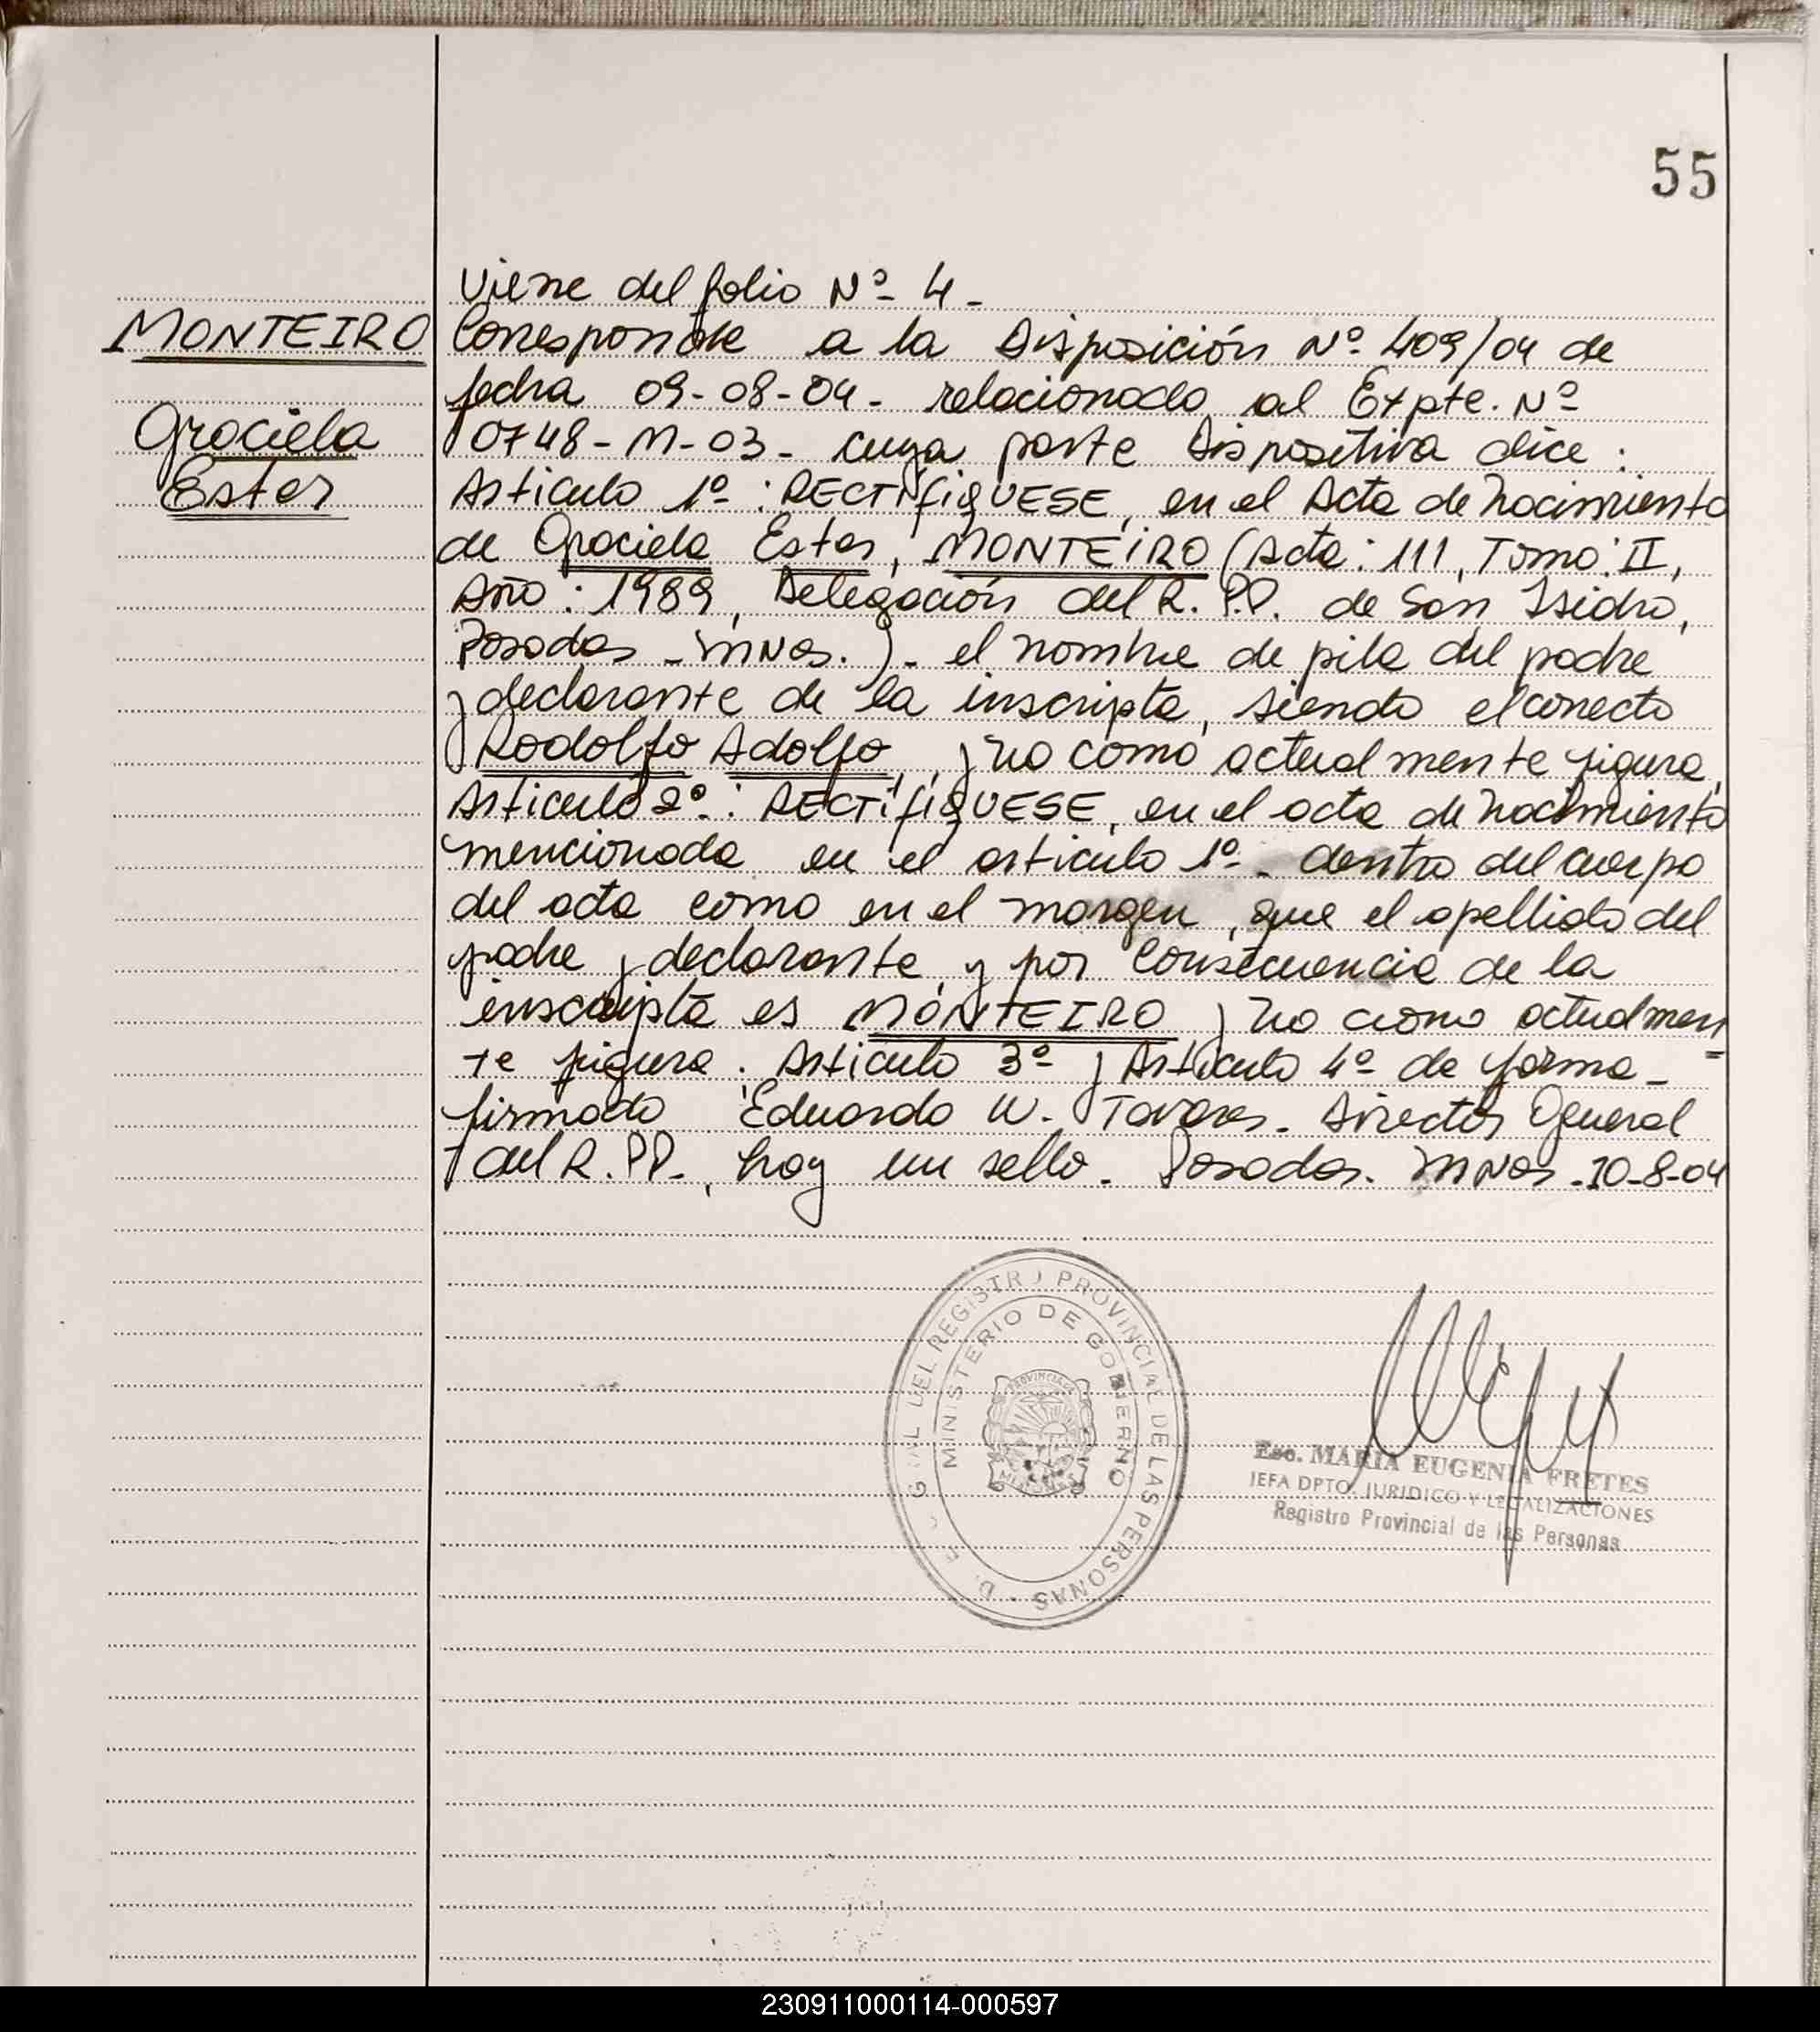 55
Viene del folio Nº 4 -
MONTEIRO
Corresponde a la Disposición Nº 409/04 de
fecha 09-08-04 - relacionado al Expte. Nº
Graciela
0748-M-03 - cuya parte Dispositiva dice :
Ester
Articulo 1º : RECTIFIQUESE, en el Acta de Nacimiento
de Graciela Ester, MONTEIRO (Acta : 111, Tomo : II,
Año : 1989, Delegación del R.P.P. de San Isidro,
Posadas - MNES.) - el nombre de pila del padre
y declarante de la inscripta, siendo el correcto
Rodolfo Adolfo, y no como actualmente figura,
Articulo 2º : RECTIFIQUESE, en el acta de nacimiento
mencionada en el articulo 1º - dentro del cuerpo
del acta como en el margen, que el apellido del
padre y declarante, y por consecuencia de la
inscripta es MONTEIRO y no como actualmen
te figura. Articulo 3º y Articulo 4º de forma -
firmado Eduardo W. Tavares - Director General
del R.P.P., hay un sello - Posadas - MNES - 10-8-04
GRAL DEL REGISTRO PROVINCIAL DE LAS PERSONAS
MINISTERIO DE GOBIERNO
PROVINCIA DE
MISIONES
Esc. MARIA EUGENIA FRETES
JEFA DPTO. JURIDICO Y LEGALIZACIONES
Registro Provincial de las Personas
230911000114-000597